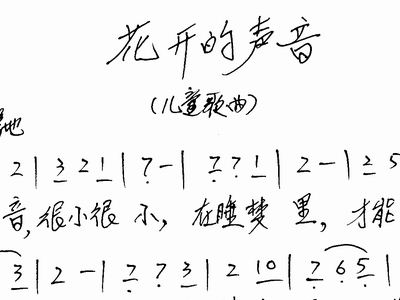 花开的声音
(儿童歌曲)
地
2 | 3 2 1 | 7 - | 7 7 1 | 2 - | 2 5
音,很小很 小, 在睡梦 里, 才能
3 | 2 - | 7 7 3 | 2 10 | 7 6 5 |